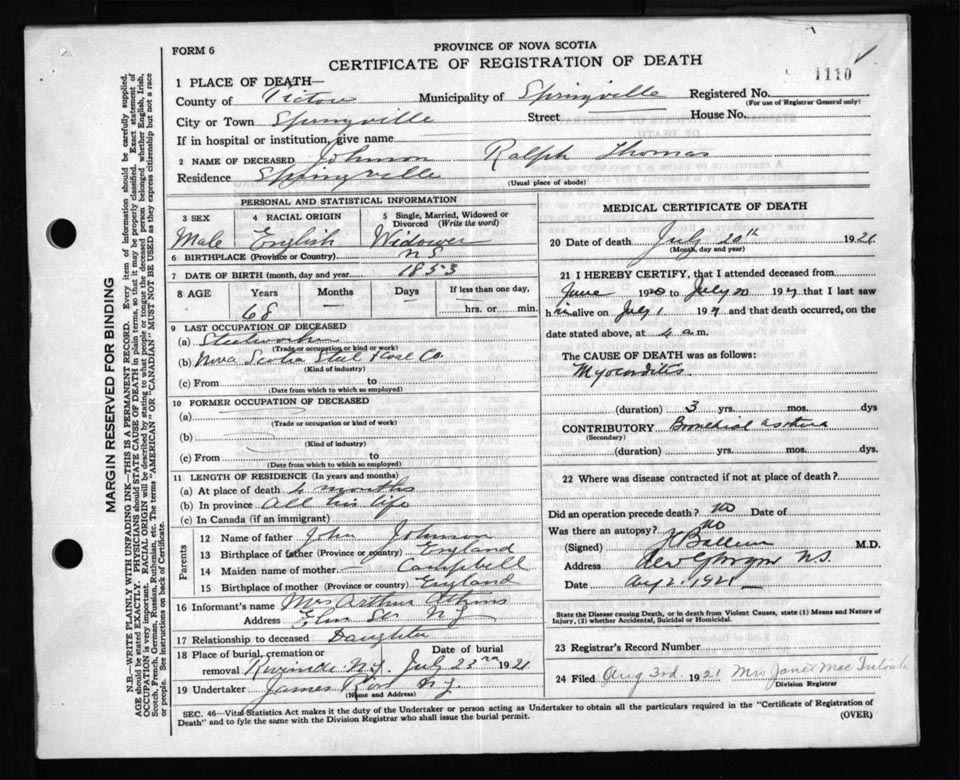 FORM 6
PROVINCE OF NOVA SCOTIA
CERTIFICATE OF REGISTRATION OF DEATH
1110
1 PLACE OF DEATH—
County of Pictou Municipality of Springville Registered No.
(For use of Registrar General only)
City or Town Springville Street House No.
If in hospital or institution, give name
2 NAME OF DECEASED Johnson Ralph Thomas
Residence Springville
(Usual place of abode)
PERSONAL AND STATISTICAL INFORMATION
3 SEX 4 RACIAL ORIGIN 5 Single, Married, Widowed or Divorced (Write the word)
Male English Widower
6 BIRTHPLACE (Province or Country) N S
7 DATE OF BIRTH (month, day and year) 1853
8 AGE Years Months Days If less than one day,
68 hrs. or min.
9 LAST OCCUPATION OF DECEASED
(a) Steelworker
(Trade or occupation or kind or work)
(b) Nova Scotia Steel Co.
(Kind of industry)
(c) From to
(Date from which to which so employed)
10 FORMER OCCUPATION OF DECEASED
(a)
(Trade or occupation or kind of work)
(b)
(Kind of industry)
(c) From to
(Date from which to which so employed)
11 LENGTH OF RESIDENCE (In years and months)
(a) At place of death 4 months
(b) In province All his life
(c) In Canada (if an immigrant)
Parents
12 Name of father John Johnson
13 Birthplace of father (Province or country) England
14 Maiden name of mother Campbell
15 Birthplace of mother (Province or country) England
16 Informant's name Mrs Arthur
Address
17 Relationship to deceased Daughter
18 Place of burial, cremation or Date of burial
removal July 22nd 1921
19 Undertaker James
(Name and Address)
MEDICAL CERTIFICATE OF DEATH
20 Date of death July 20th 1921
(Month, day and year)
21 I HEREBY CERTIFY, that I attended deceased from
June 1920 to July 20 192 that I last saw
him alive on July 1 192 and that death occurred, on the
date stated above, at 4 a m.
The CAUSE OF DEATH was as follows:
Myocarditis
(duration) 3 yrs. mos. dys
CONTRIBUTORY Bronchial asthma
(Secondary)
(duration) yrs. mos. dys
22 Where was disease contracted if not at place of death?
Did an operation precede death? no Date of
Was there an autopsy? no
(Signed) M.D.
Address New Glasgow N.S.
Date Aug 2, 1921
State the Disease causing Death, or in death from Violent Causes, state (1) Means and Nature of
Injury, (2) whether Accidental, Suicidal or Homicidal.
23 Registrar's Record Number
24 Filed Aug 3rd 1921 Mrs
Division Registrar
SEC. 46—Vital Statistics Act makes it the duty of the Undertaker or person acting as Undertaker to obtain all the particulars required in the "Certificate of Registration of
Death" and to fyle the same with the Division Registrar who shall issue the burial permit.
(OVER)
MARGIN RESERVED FOR BINDING
N.B.—WRITE PLAINLY WITH UNFADING INK—THIS IS A PERMANENT RECORD. Every item of information should be carefully supplied.
AGE should be stated EXACTLY. PHYSICIANS should STATE CAUSE OF DEATH in plain terms, so that it may be properly classified. Exact statement of
OCCUPATION is very important. RACIAL ORIGIN will be described by stating to what people or tongue the deceased person belonged whether English, Irish,
Scotch, French, German, Russian, Ruthenian, etc. The terms "AMERICAN" OR "CANADIAN" MUST NOT BE USED as they express citizenship but not a race
or people. See instructions on back of Certificate.